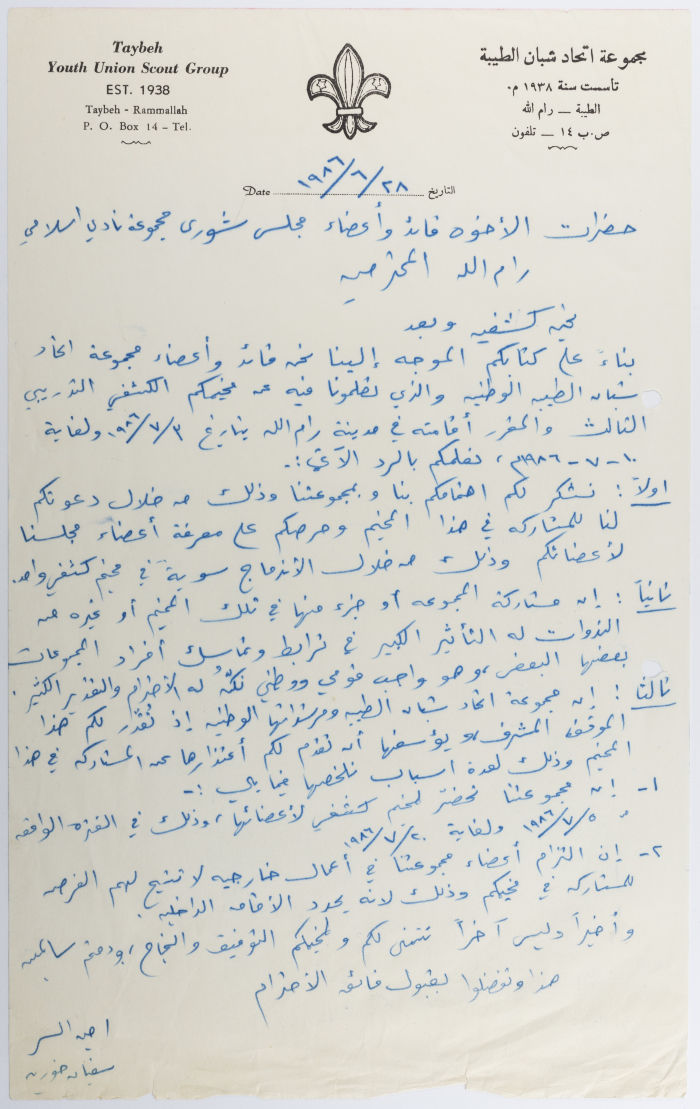 Taybeh
Youth Union Scout Group
EST. 1938
Taybeh - Rammallah
P. O. Box 14 - Tel.
مجموعة اتحاد شبان الطيبة
تأسست سنة ١٩٣٨ م.
الطيبة — رام الله
ص.ب ١٤ — تلفون
Date ١٩٨٦/٦/٢٨ التاريخ
حضرات الأخوه قائد وأعضاء مجلس شورى مجموعة نادي اسلامي
رام الله المحترمين
تحيه كشفيه وبعد
بناءً على كتابكم الموجه إلينا نحن قائد وأعضاء مجموعة اتحاد
شبان الطيبه الوطنيه والذي تعلمونا فيه عن مخيمكم الكشفي التدريبي
الثالث والمقرر أقامته في مدينة رام الله بتاريخ ١٩٨٦/٧/٣ ولغاية
١٠-٧-١٩٨٦م، نعلمكم بالرد الآتي :-
اولاً : نشكر لكم اهتمامكم بنا وبمجموعتنا وذلك من خلال دعوتكم
لنا للمشاركه في هذا المخيم وحرصكم على معرفة أعضاء مجلسنا
لأعضائكم وذلك من خلال الأندماج سويةً في مخيم كشفي واحد.
ثانياً : إن مشاركة المجموعه أو جزء منها في تلك المخيم أو غيره من
الندوات له التأثير الكبير في ترابط وتماسك أفراد المجموعات
بعضها البعض، وهو واجب قومي ووطني نكنُّ له الأحترام والتقدير الكثير.
ثالثاً : إن مجموعة اتحاد شبان الطيبه ومرشداتها الوطنيه إذ تقدّر لكم هذا
الموقف المشرف، ويؤسفها أن تقدم لكم أعتذارها عن المشاركه في هذا
المخيم وذلك لعدة اسباب نلخصها فيما يلي :-
١- إن مجموعتنا تحضر لمخيم كشفي لأعضائها، وذلك في الفتره الواقعه
١٩٨٦/٧/٥ ولغاية ١٩٨٦/٧/٢٠
٢- إن التزام أعضاء مجموعتنا في أعمال خارجيه لا تتيح لهم الفرصه
للمشاركه في مخيمكم وذلك لأنه يحدد الأقامه الداخليه.
وأخيراً وليس آخراً نتمنى لكم ولمخيمكم التوفيق والنجاح، ودمتم سالمين
هذا وتفضلوا بقبول فائق الأحترام
امين السر
سفيان خوريه